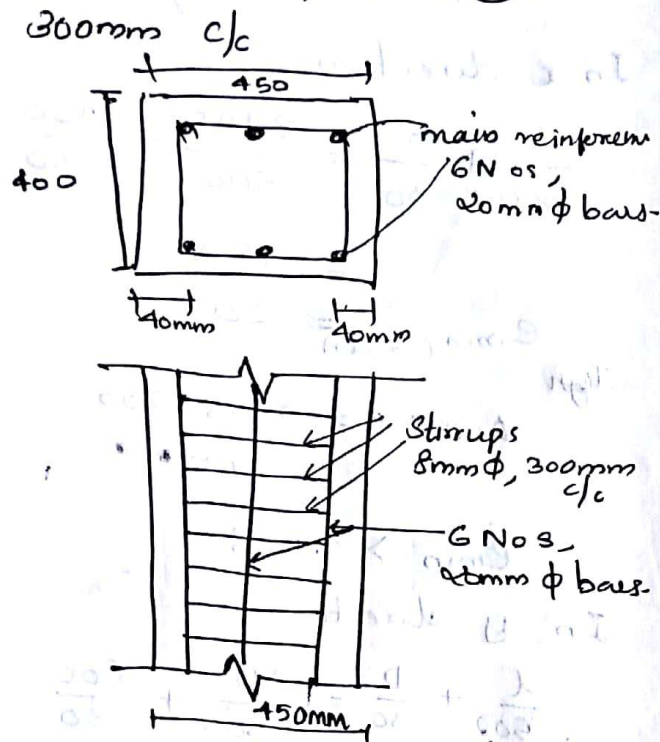 300mm c/c
450
400
main reinforcem
6 Nos,
20mm ϕ bars-
40mm
40mm
Stirrups
8mm ϕ, 300mm
c/c
6 Nos,
20mm ϕ bars-
450MM